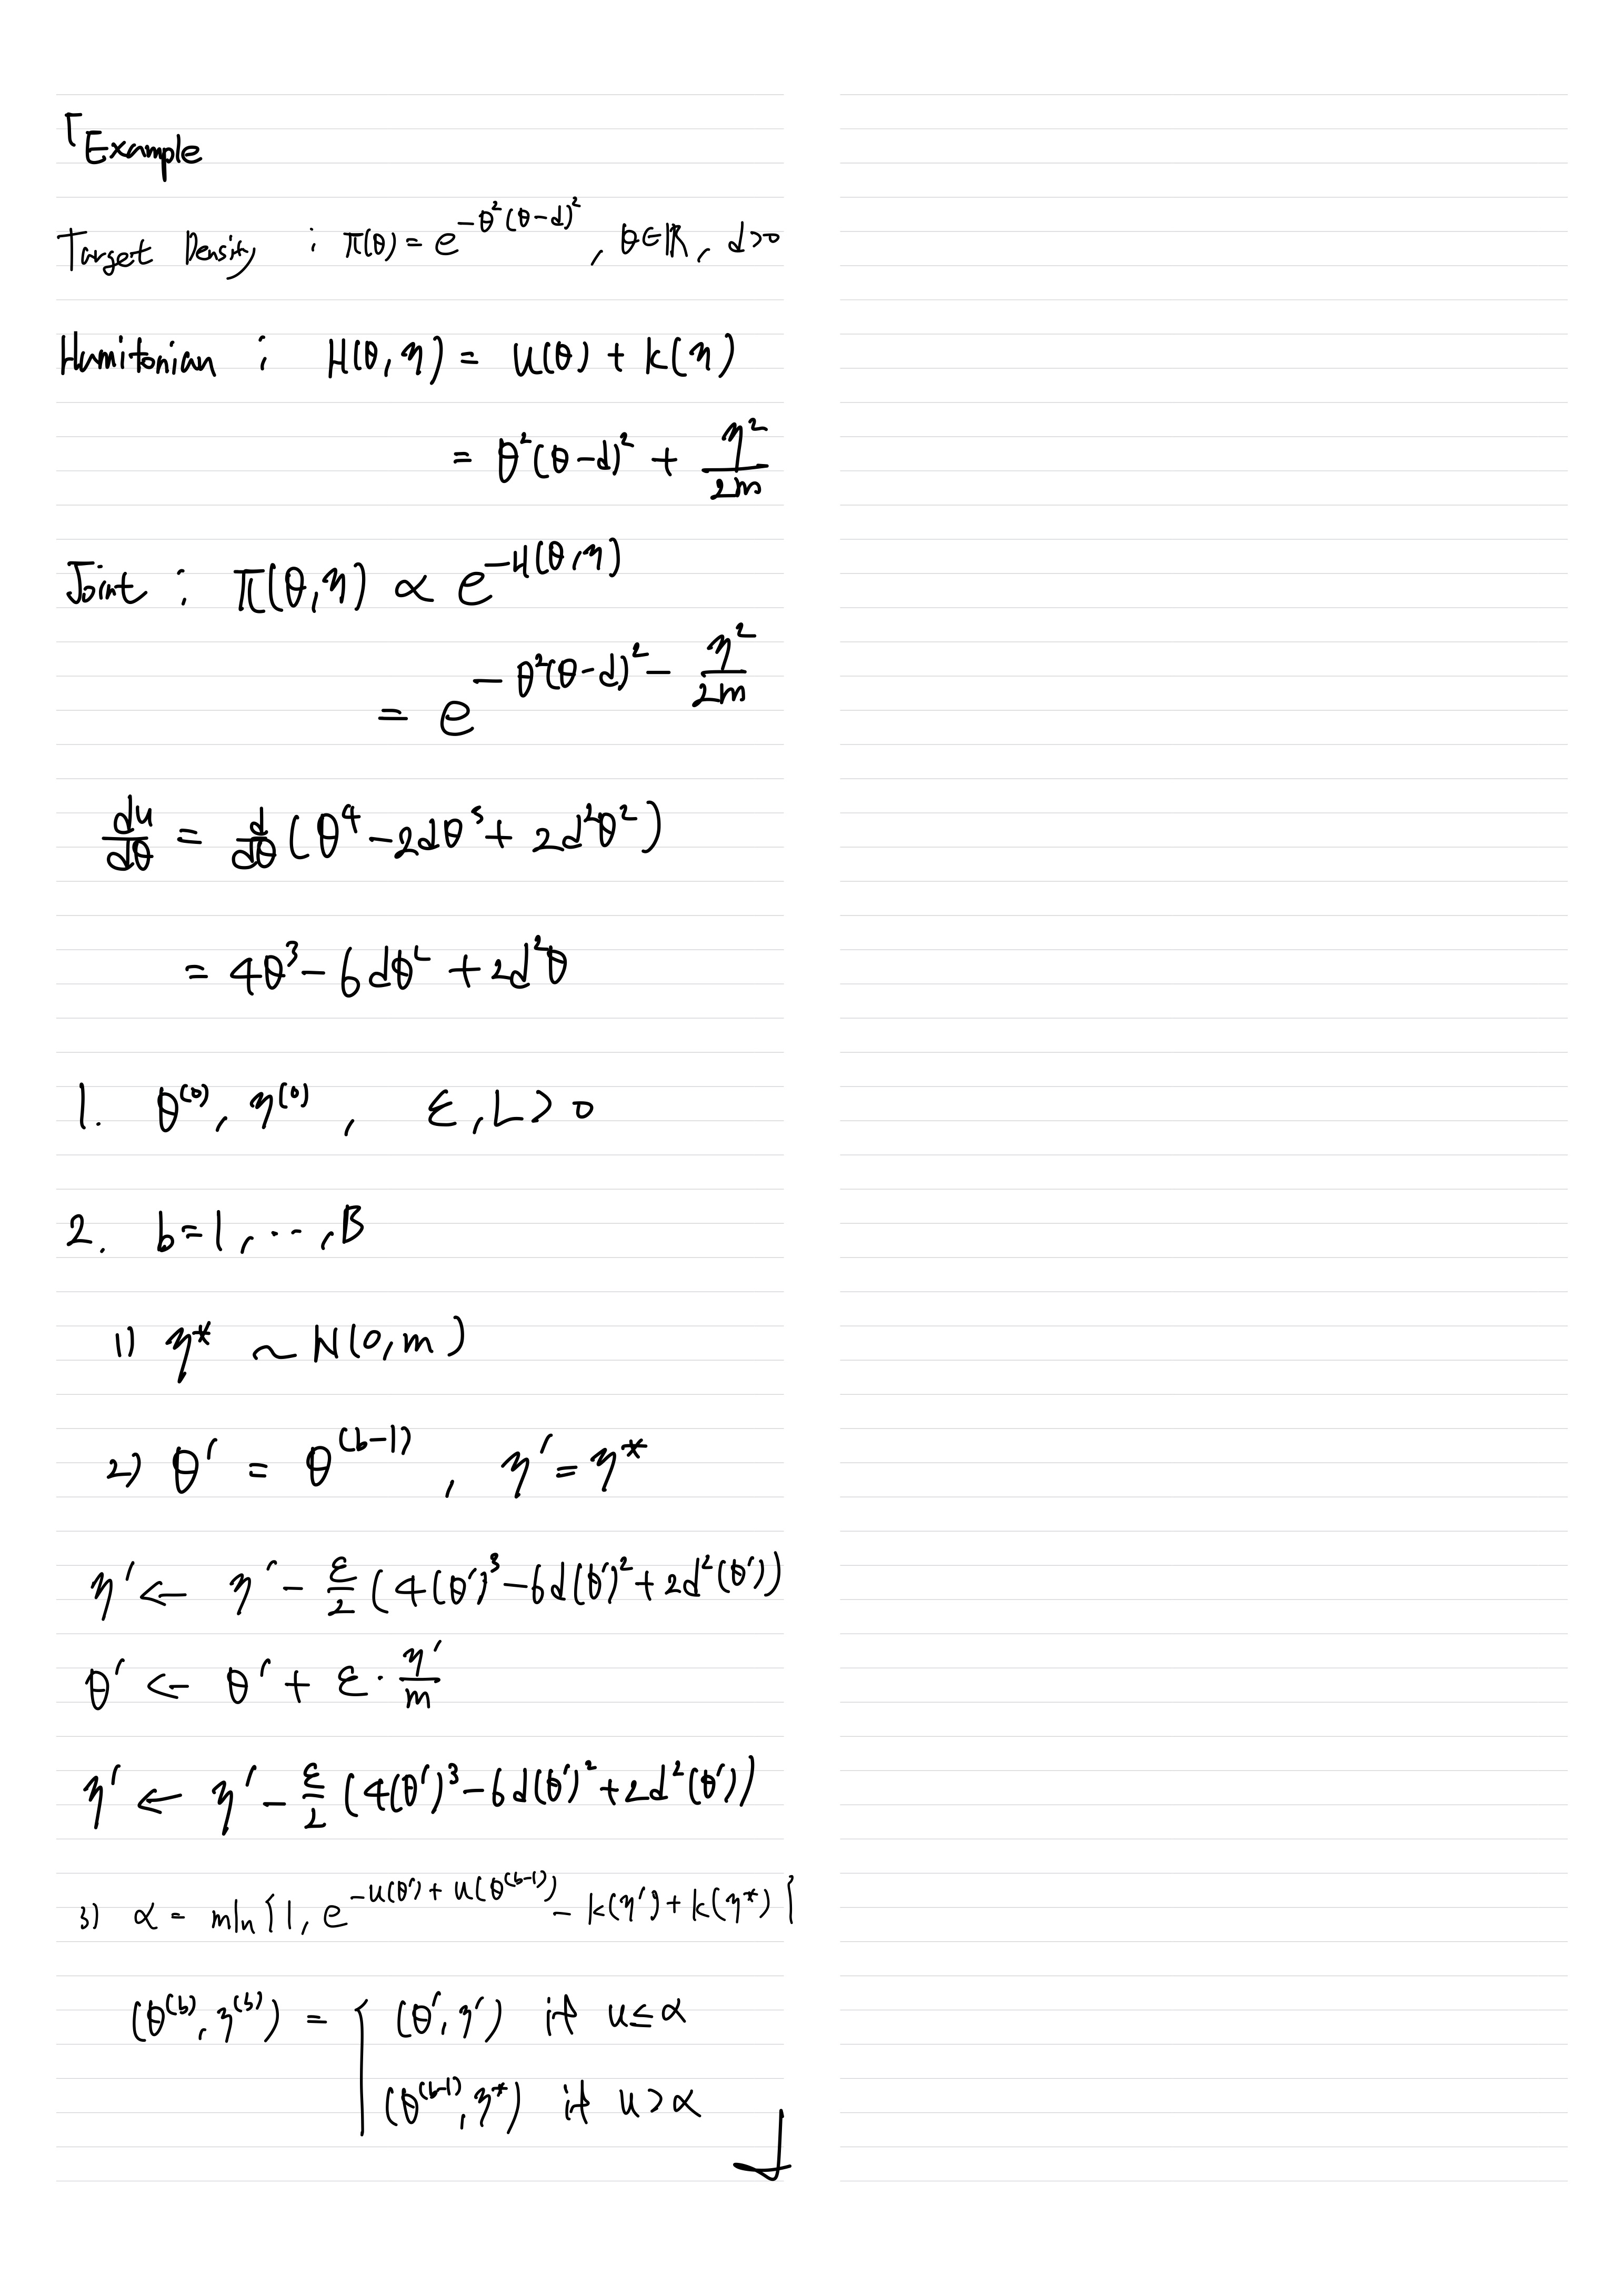 「Example
Target Density : π(θ) = e^{-θ²(θ-d)²}, θ∈ℝ, d>0
Hamiltonian : H(θ,η) = U(θ) + K(η)
= θ²(θ-d)² + η²/2m
Joint : π(θ,η) ∝ e^{-H(θ,η)}
= e^{-θ²(θ-d)² - η²/2m}
du/dθ = d/dθ (θ⁴ - 2dθ³ + 2d²θ²)
= 4θ³ - 6dθ² + 2d²θ
1. θ^{(0)}, η^{(0)}, ε, L > 0
2. b=1, ..., B
1) η* ~ N(0,m)
2) θ' = θ^{(b-1)}, η' = η*
η' ← η' - ε/2 (4(θ')³ - 6d(θ')² + 2d²(θ'))
θ' ← θ' + ε · η'/m
η' ← η' - ε/2 (4(θ')³ - 6d(θ')² + 2d²(θ'))
3) α = min{1, e^{-U(θ') + U(θ^{(b-1)}) - K(η') + K(η*)}}
(θ^{(b)}, η^{(b)}) = { (θ', η') if u ≤ α
(θ^{(b-1)}, η*) if u > α
」